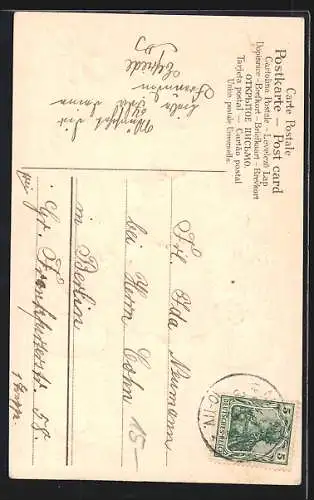 Carte Postale
Postkarte — Post card
Cartolina Postale — Levelező Lap
Dopisnice — Brefkort — Briefkaart — Brevkort
ОТКРЫТОЕ ПИСЬМО.
Tarjeta postal — Cartão postal
Union postale Universelle.
Elfriede
Frl. Ida Neumann
bei Herrn Cohn 15-
in Berlin
Gr. Frankfurterstr. 58.
1 Treppe
5 5
DEUTSCHES REICH